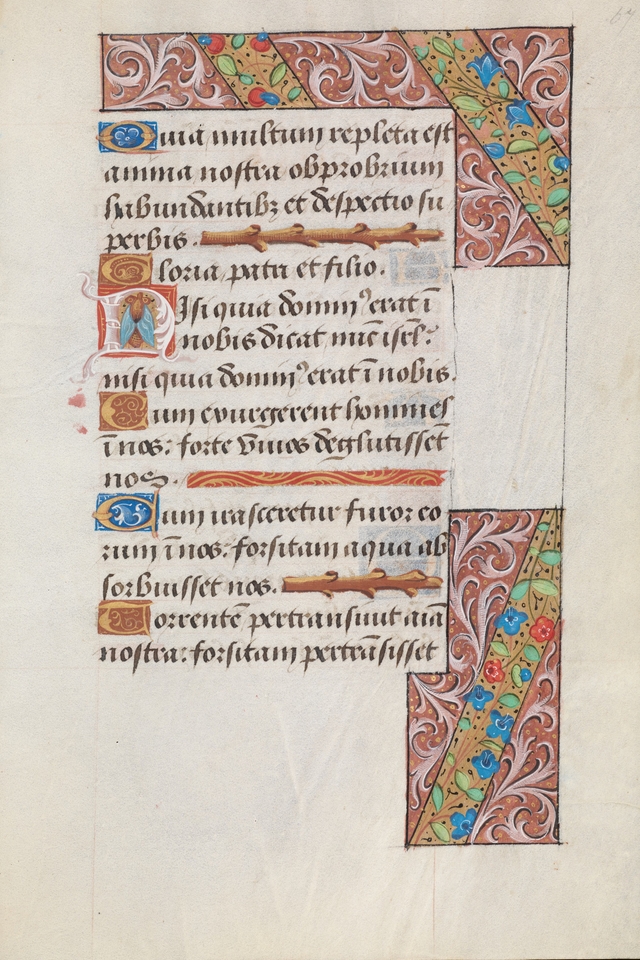 Quia multum repleta est
anima nostra obprobrium
habundantibz et despectio su
perbis.
Gloria patri et filio.
Nisi quia domin⁹ erat ī
nobis dicat nūc isrl:
nisi quia domin⁹ erat ī nobis.
Cum exurgerent homines
ī nos: forte viuos deglutisset
nos.
Cum irasceretur furor eo
rum ī nos: forsitam aqua ab
sorbuisset nos.
Torrentē pertransiuit aīa
nostra: forsitam pertrāsisset